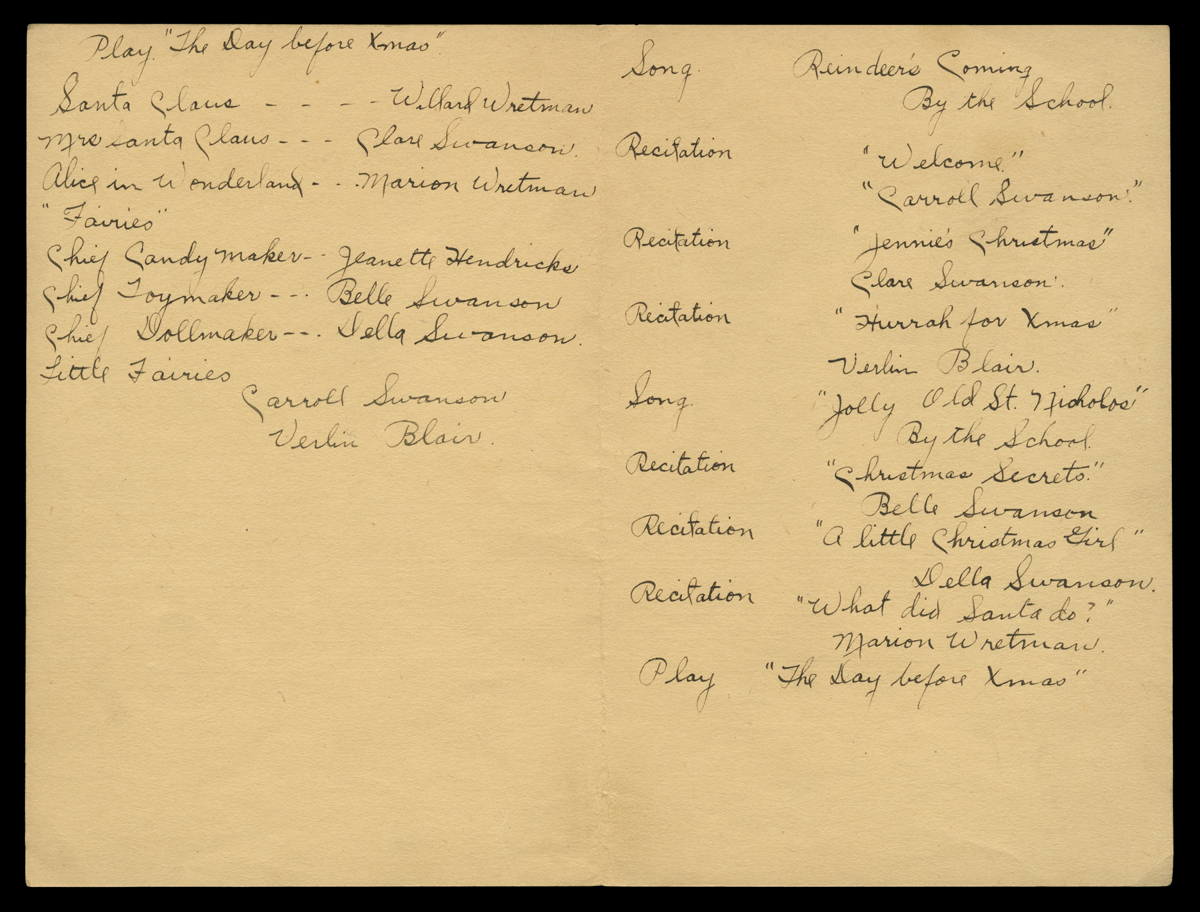 Play. "The Day before Xmas".
Santa Claus - - - - Willard Wretman
Mrs Santa Claus - - - Clare Swanson.
Alice in Wonderland - - . Marion Wretman
"Fairies"
Chief Candy maker - - Jeanette Hendricks
Chief Toymaker - - . Belle Swanson
Chief Dollmaker - - . Della Swanson.
Little Fairies
Carroll Swanson
Verlin Blair.
Song. Reindeer's Coming
By the School.
Recitation "Welcome."
"Carroll Swanson."
Recitation "Jennie's Christmas"
Clare Swanson.
Recitation "Hurrah for Xmas"
Verlin Blair.
Song. "Jolly Old St. Nicholos"
By the School.
Recitation "Christmas Secrets."
Belle Swanson
Recitation "A little Christmas Girl"
Della Swanson.
Recitation "What did Santa do?"
Marion Wretman.
Play "The Day before Xmas"